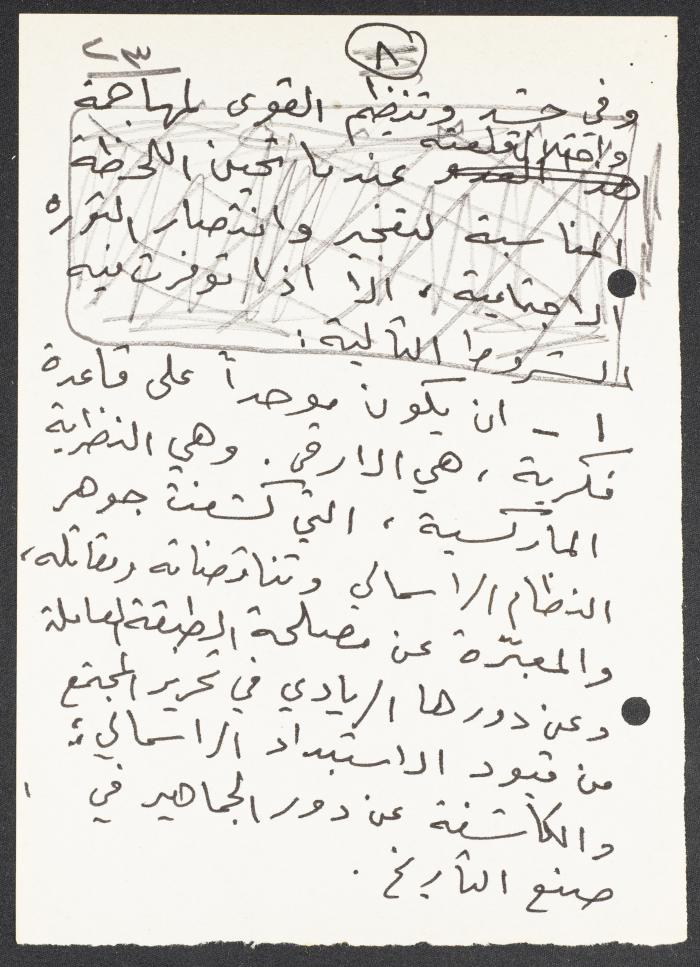 ٨
٢٣
وفي حشد وتنظيم القوى لمهاجمة
واحتلال قلعته
هذا العدو عندما تحين اللحظة
المناسبة لتفجير وانتصار الثورة
الاجتماعية، الا اذا توفرت فيه
الشروط التالية:
١ - ان يكون موحداً على قاعدة
فكرية، هي الارقى. وهي النظرية
الماركسية، التي كشفت جوهر
النظام الراسمالي وتناقضاته ومقاتله،
والمعبّرة عن مصلحة الطبقة العاملة
وعن دورها الريادي في تحرير المجتمع
من قيود الاستبداد الراسمالي؛
والكاشفة عن دور الجماهير في
صنع التأريخ.